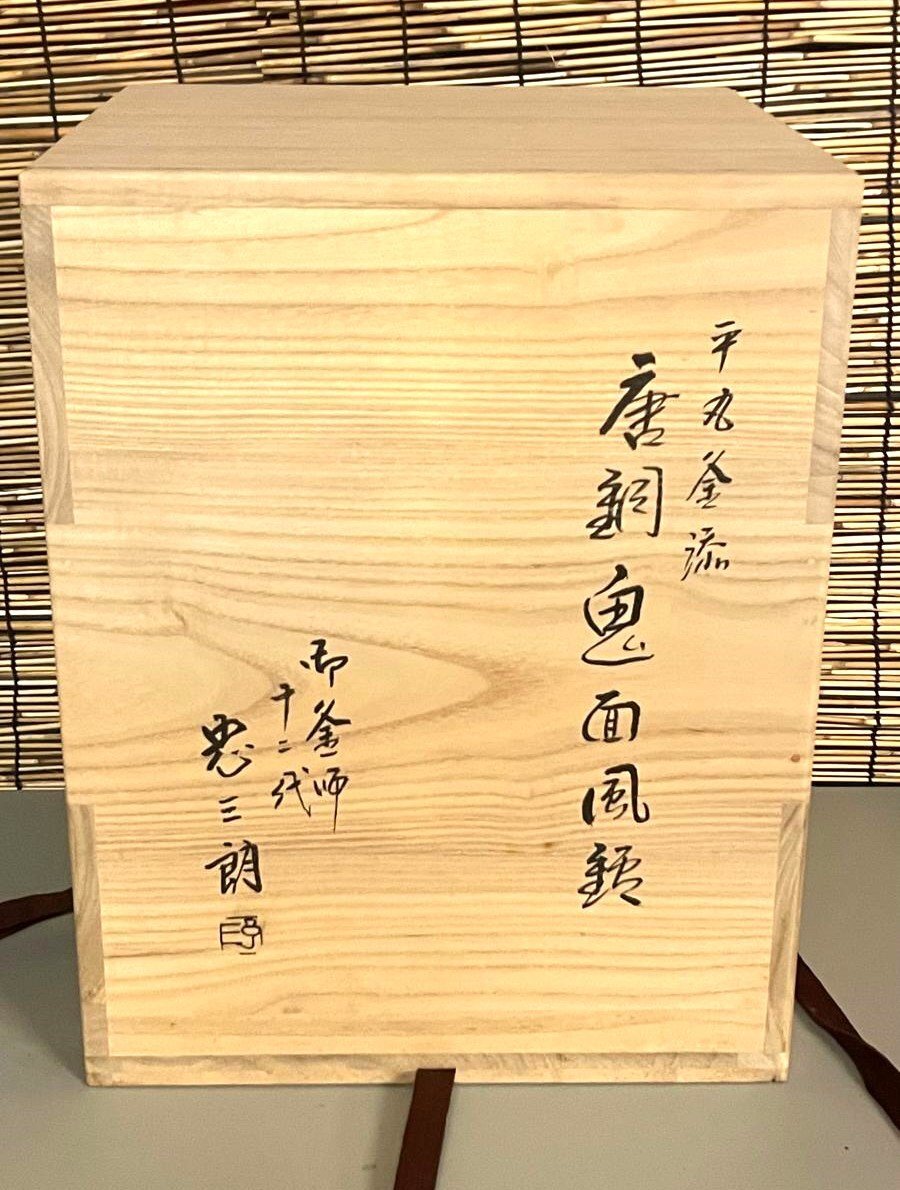 平丸釜添
唐銅鬼面風鈩
御釜師
十二代
忠三朗